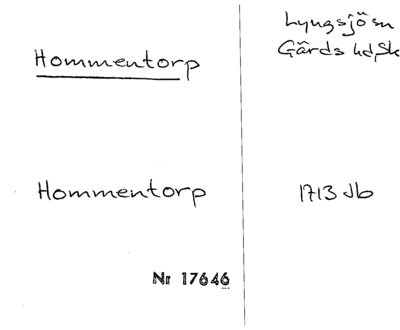 Hommentorp
Lyngsjö sn
Gärds hd, Sk
Hommentorp
1713 Jb
Nr 17646